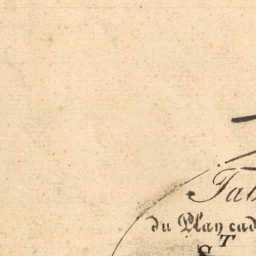 Tab
du Plan cad
S T